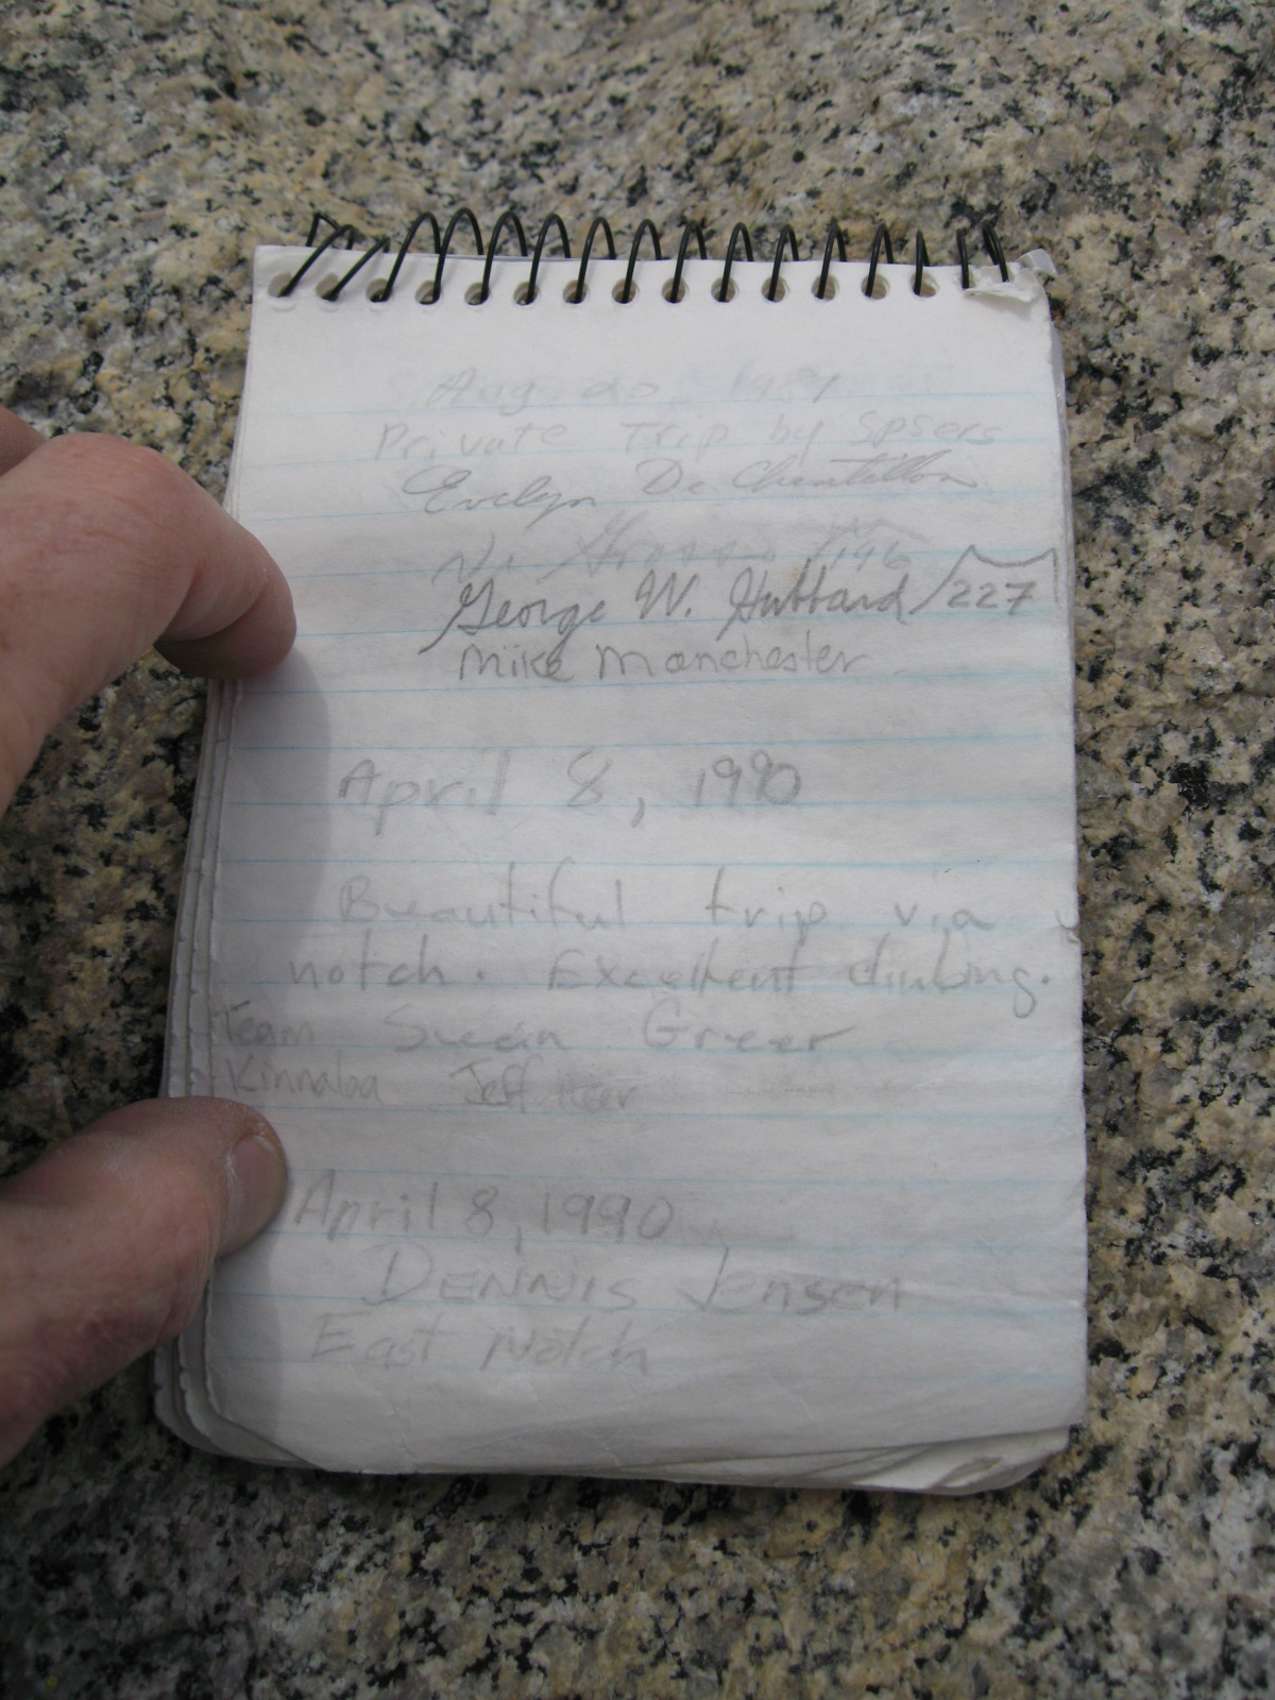 Aug 20, 1989
Private Trip by Spsers
Evelyn De Chantillon
George W. Hubbard 227
Mike Manchester
April 8, 1990
Beautiful trip via
notch. Excellent climbing.
Team Susan Greer
Kinnaloa Jeff
April 8, 1990
DENNIS Jensen
East Notch